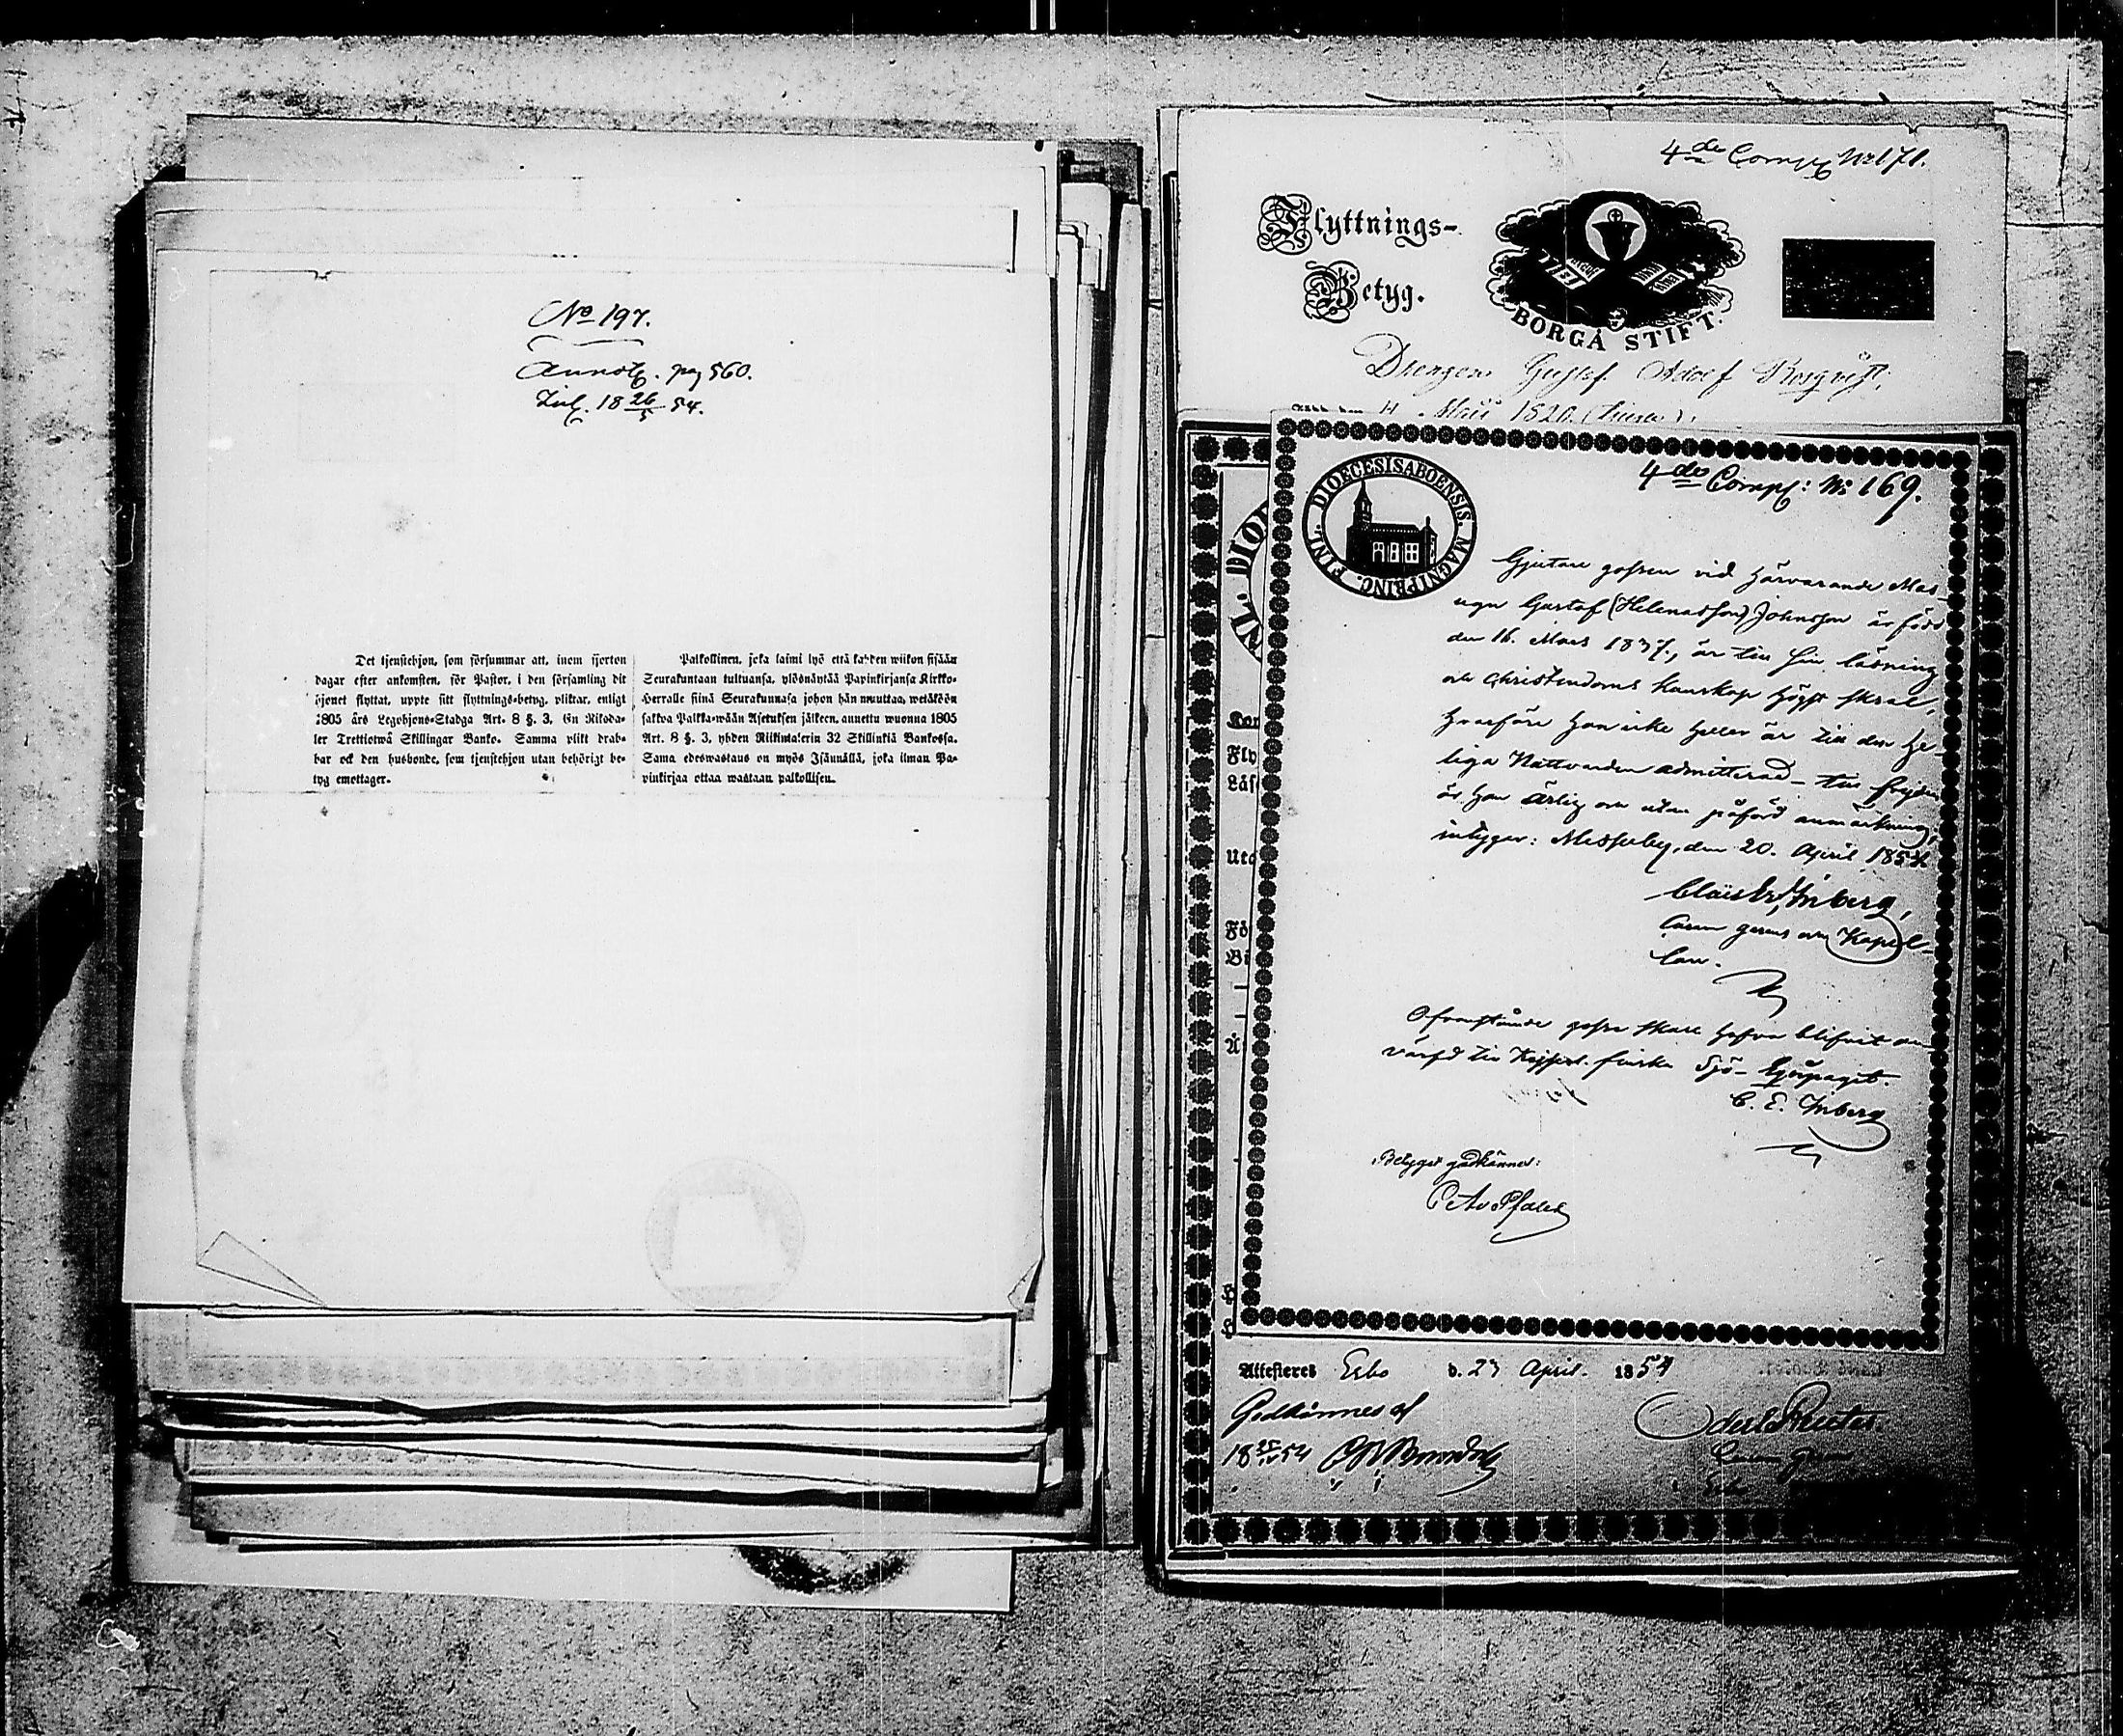 No 197.
Annot. pag 560.
Zuf. 18 26/5 54.
Det tjenstehjon, som försummar att, inom fjorton
dagar efter ankomsten, för Pastor, i den församling dit
hjonet flyttat, uppte sitt flyttnings-betyg, pliktar, enligt
1805 års Legohjons-Stadga Art. 8 §. 3, En Riksda-
ler Trettiotwå Skillingar Banko. Samma plikt drab-
bar ock den husbonde, som tjenstehjon utan behörigt be-
tyg emottager.
Palkollinen, joka laimi lyö että kahden wiikon sisään
Seurakuntaan tultuansa, ylösnäytää Papinkirjansa Kirkko-
Herralle siinä Seurakunnasa johon hän muuttaa, wetäköön
sakkoa Palkka-wään Asetuksen jälkeen, annettu wuonna 1805
Art. 8 §. 3, yhden Riikintalerin 32 Skillinkiä Bankossa.
Sama edeswastaus on myös Isännällä, joka ilman Pa-
pinkirjaa ottaa wastaan palkollisen.
4de Comp. No 171.
Flyttnings-
Betyg.
BORGÅ STIFT.
Drengen Gustaf Adolf Rosqvist,
4 Maii 1820
4de Comp: No 169.
FINL. DIOECESIS ABOENSIS. MAGNI PRINC.
Gjutare gossen vid härvarande Mas-
ugn Gustaf (Helenasson) Johnsson är född
den 16. Mars 1837, är till sin läsning
och Christendoms kunskap högst skral,
hvarföre han icke heller är till den he-
liga Nattvarden admitterad – till frejden
är han ärlig och utan påförd anmärkning,
intygar: Messuby, den 20. April 1854
Claës Er. Inberg,
Curam gerens och Kapel-
lan.
Ofvanstående gosse skall hafva blifvit an-
värfd till Kejserl. finska Sjö-Eqvipaget.
C. E. Inberg
Betyget godkännes:
Attesteres Esbo d. 23 April. 1854
Godkännes af
18 25/IV 54